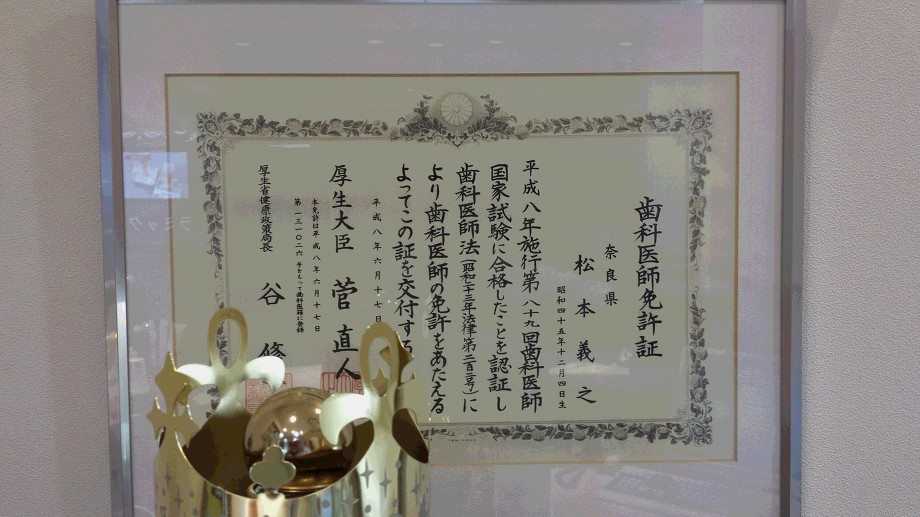 歯科医師免許証
奈良県
松本義之
昭和四十五年十二月四日生
平成八年施行第八十九回歯科医師
国家試験に合格したことを認証し
歯科医師法(昭和二十三年法律第二百二号)に
より歯科医師の免許をあたえる
よってこの証を交付する
平成八年六月十七日
厚生大臣 菅直人
本免許は平成八年六月十七日
第一三一〇二六号をもって歯科医籍に登録
厚生省健康政策局長 谷修